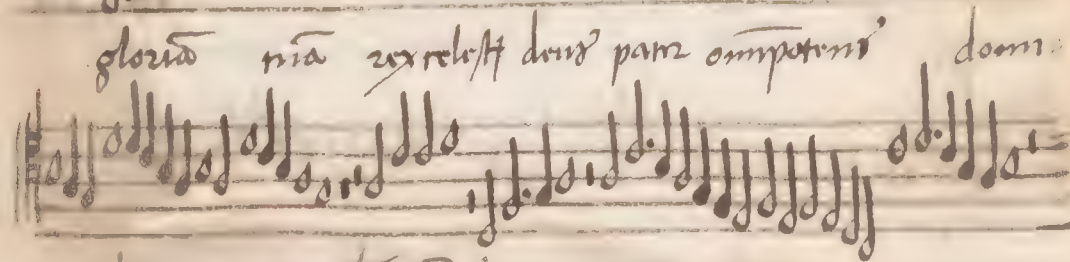 gloriā tuā rex celestꝭ deus pater omnipotens domi